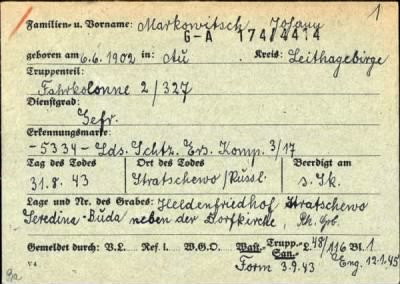 1
Familien- u. Vorname: Markowitsch Johann
G-A 174/4414
geboren am 6.6.1902 in: Au Kreis: Leithagebirge
Truppenteil:
Fahrkolonne 2/327
Dienstgrad:
Gefr.
Erkennungsmarke:
-5334- Lds. Schtz. Ers. Komp. 3/17
Tag des Todes Ort des Todes Beerdigt am
31.8.43 Stratschewo/Russl. s. Gk.
Lage und Nr. des Grabes: Heldenfriedhof Stratschewo
Seredina-Buda neben der Dorfkirche, Rh. Grb.
Gemeldet durch: V.L. Ref. L. W.G.O. Wast.- Trupp.- L. 48/116 Bl. 1
San.-
Form 3.9.43 Eng. 12.1.45